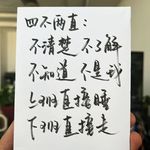 四不两直：
不清楚 不了解
不知道 不是我
上班直接睡
下班直接走